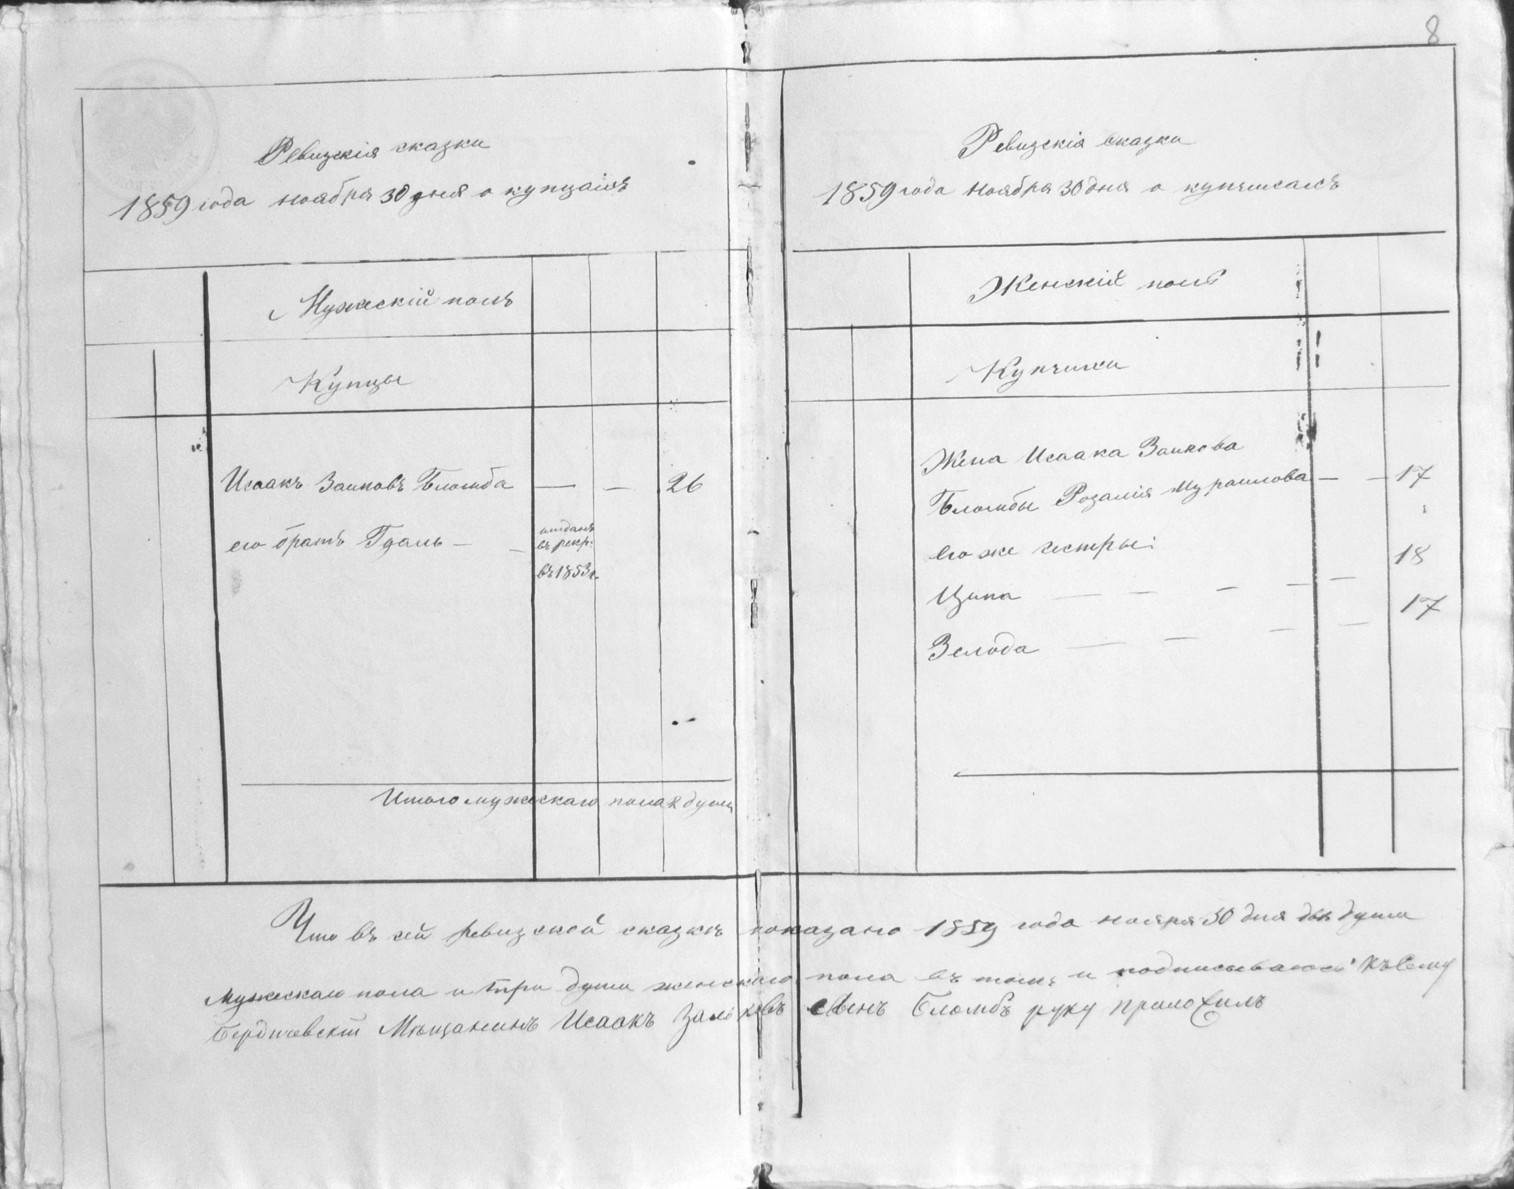 8
Ревизскія сказки
1859 года ноября 30 дня о купцахъ
Мужескій полъ
Купцы
Исаакъ Заиновъ Бломба — — 26
его братъ Гдаль — —
отданъ
въ рекр:
въ 1853 г.
Итого мужескаго пола 2 души
Ревизскія сказки
1859 года ноября 30 дня о купчихахъ
Женскій полъ
Купчихи
Жена Исаака Заинова
Бломбы Розалія Израилова — — 17
его же сестры:
18
Ципа — — — — —
17
Зелода — — — —
Что въ сей ревизской сказкѣ показано 1859 года нояря 30 дня двѣ души
мужескаго пола и три души женскаго пола въ томъ и подписываюсь Къ сему
Бердичевскій Мѣщанинъ Исаакъ руку приложилъ